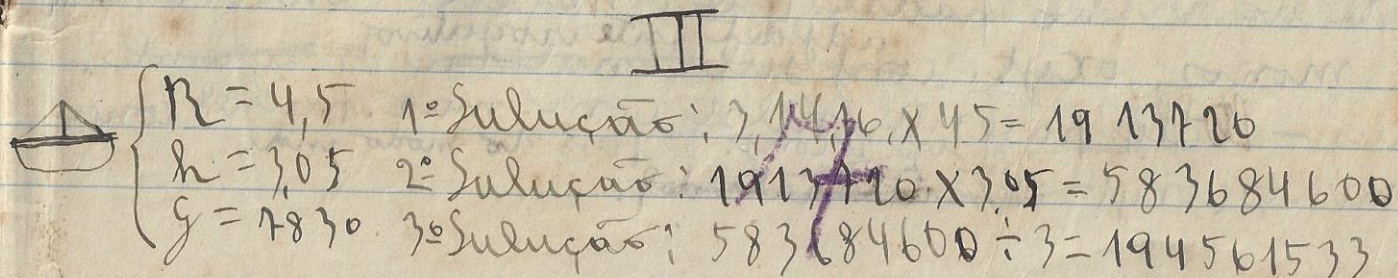 III
R = 4,5 1º Sulução: 3,1416 X 45 = 1913720
h = 3,05 2º Sulução: 1913720 X 3,05 = 583684600
g = 7830 3º Sulução: 583684600 ÷ 3 = 194561533